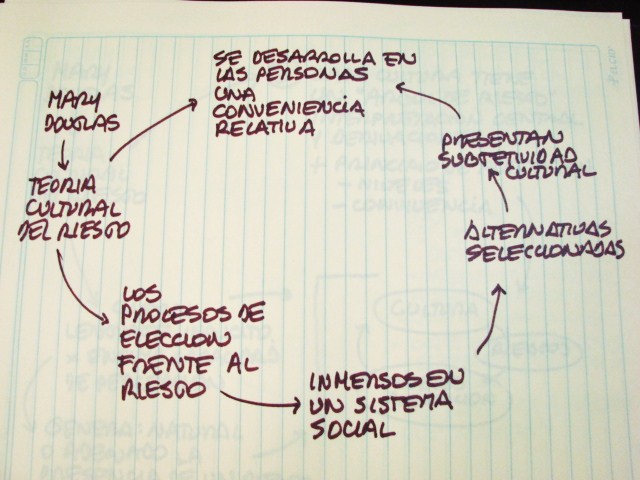 MARY
DOUGLAS
TEORIA
CULTURAL
DEL RIESGO
SE DESARROLLA EN
LAS PERSONAS
UNA
CONVENIENCIA
RELATIVA
LOS
PROCESOS DE
ELECCION
FRENTE AL
RIESGO
INMERSOS EN
UN SISTEMA
SOCIAL
ALTERNATIVAS
SELECCIONADAS
PRESENTAN
SUBJETIVIDAD
CULTURAL
CULTURA